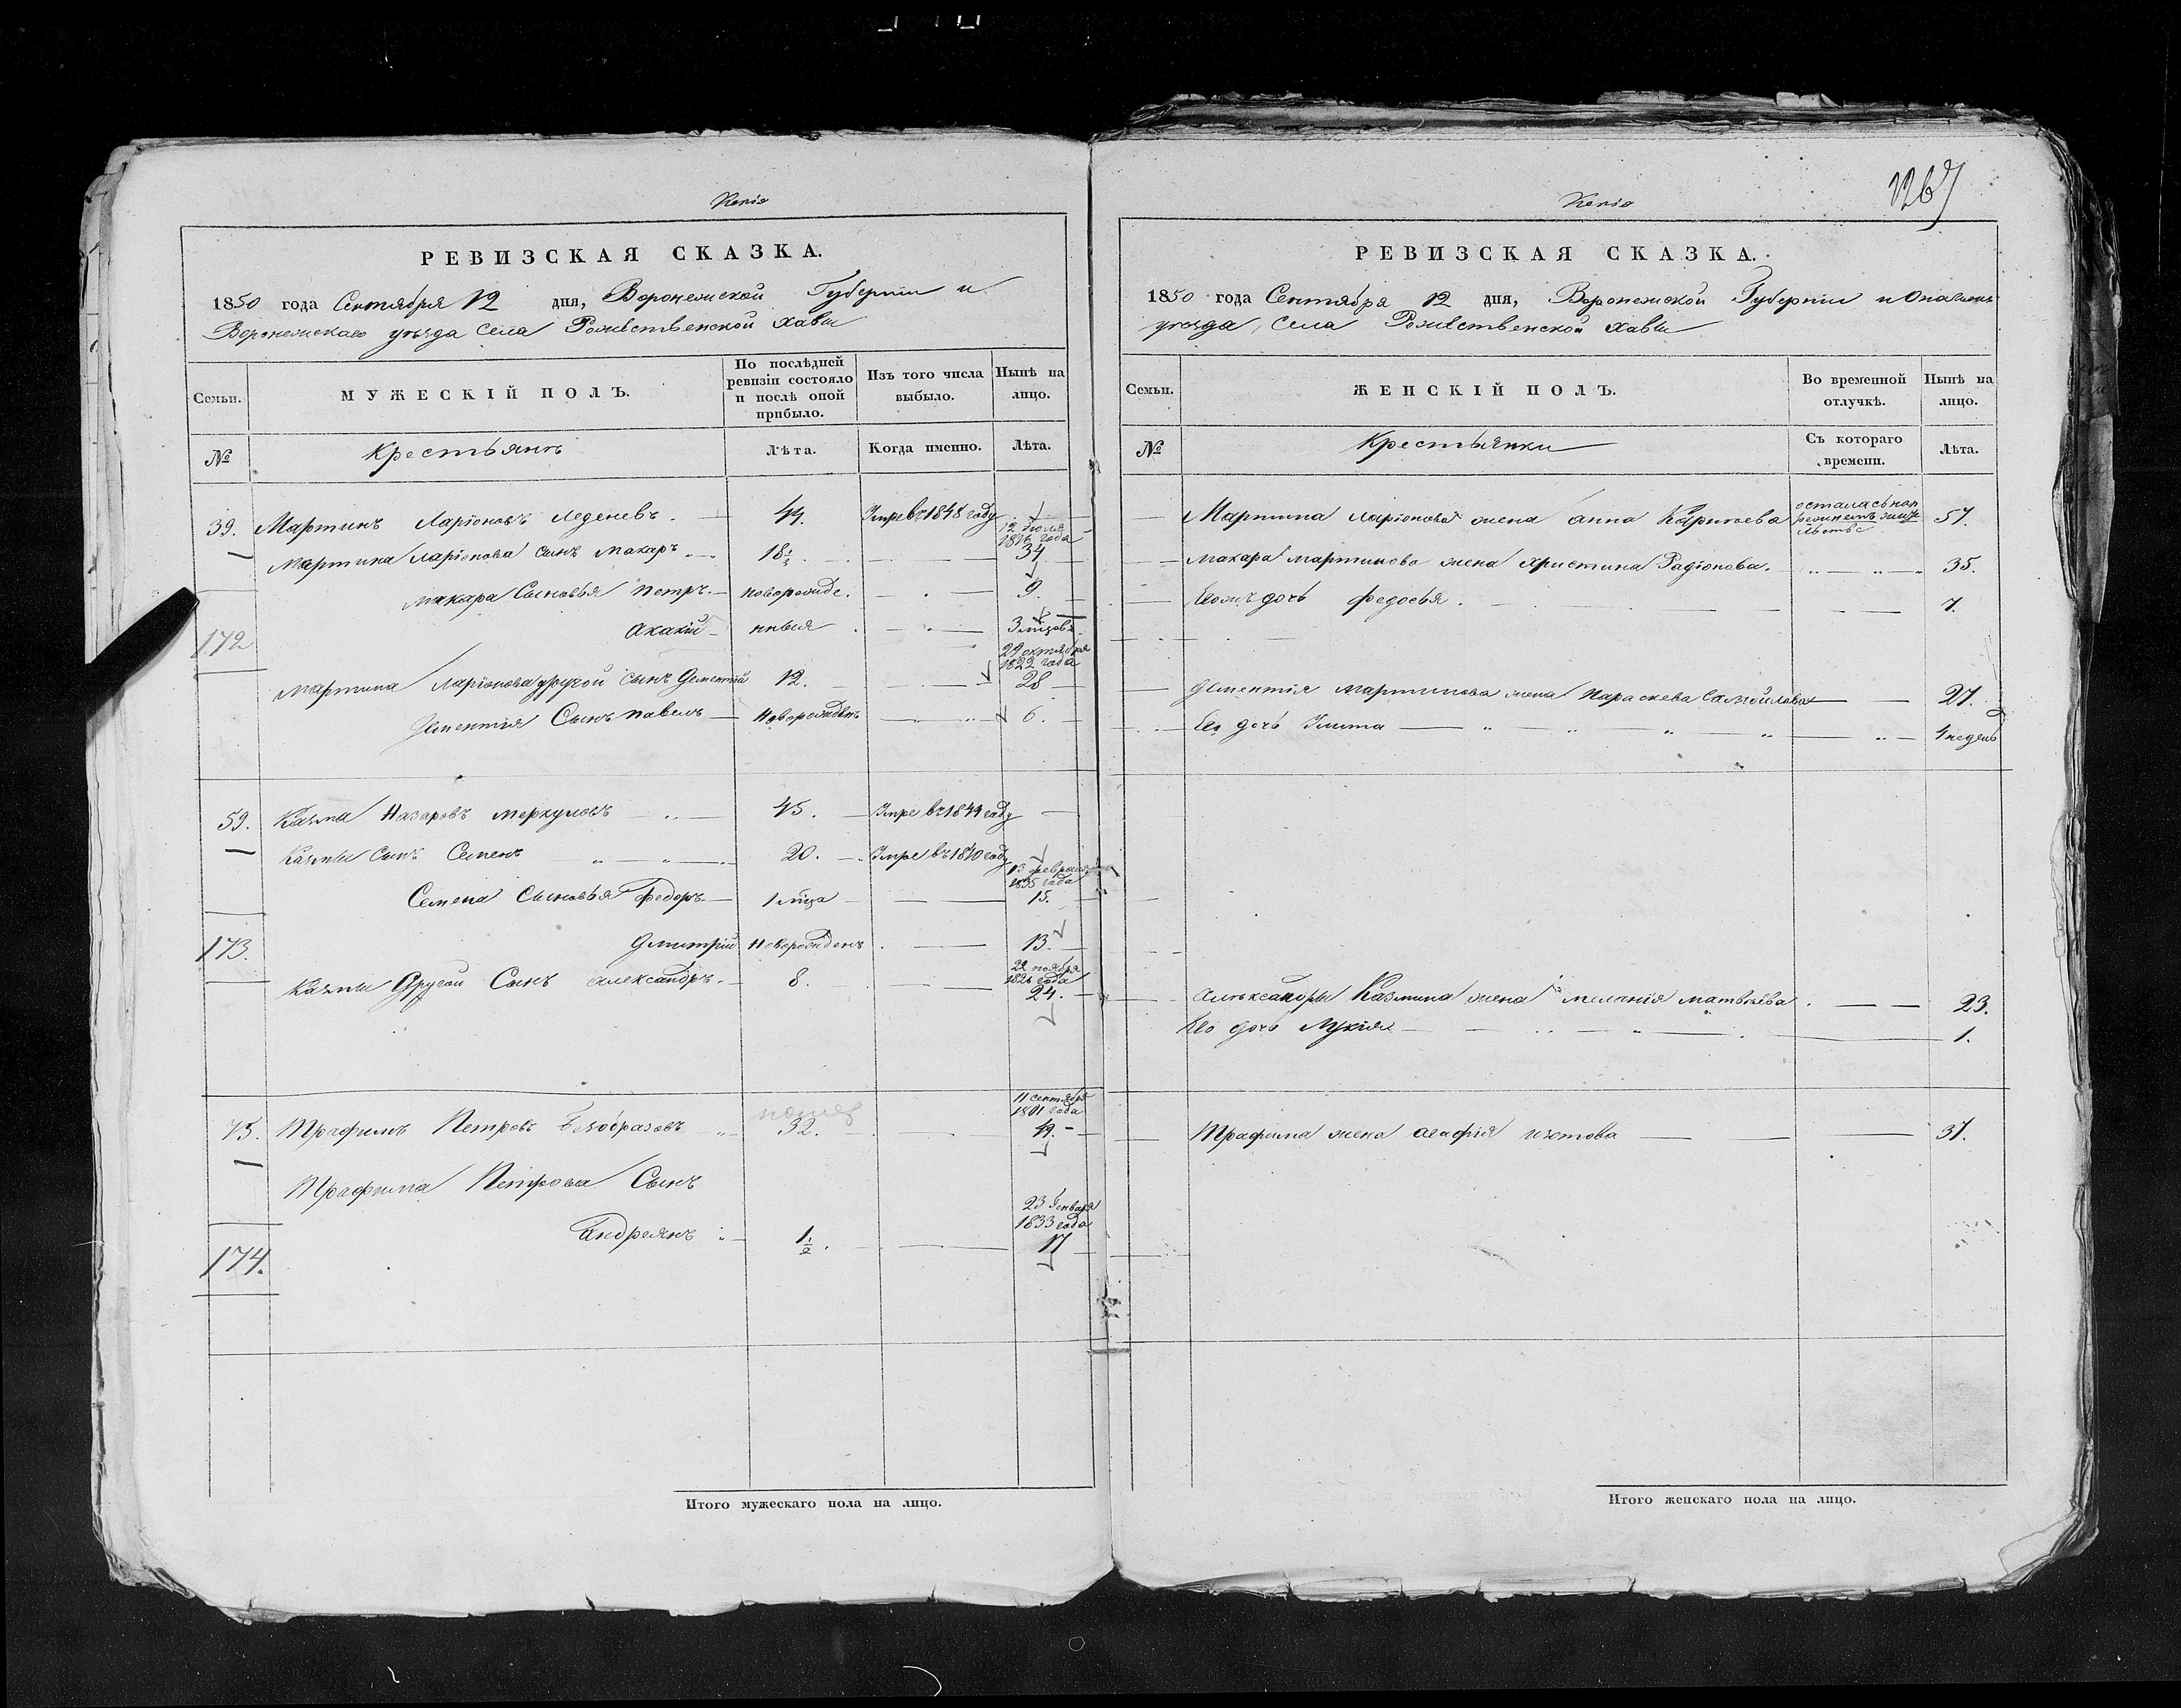 Копія
РЕВИЗСКАЯ СКАЗКА.
1850 года Сентября 12 дня, Воронежской Губерніи и
Воронежскаго уѣзда села Рожественской Хавы
Семьи.
МУЖЕСКІЙ ПОЛЪ.
По послѣдней ревизіи состояло и послѣ оной прибыло.
Изъ того числа выбыло.
Нынѣ на лицо.
№
Крестьянъ
Лѣта.
Когда именно.
Лѣта.
39. Мартинъ Ларіоновъ Леденевъ. 44. Умре въ 1848 году
12 Іюля
1816 года
Мартина Ларіонова сынъ Макаръ 18 1/2 34
Макара Сыновья Петръ. новорожде. 9.
172
Акакій нныя 3 мѣсов.
29 октября
1822 года
Мартина Ларіонова другой сынъ Дементій 12. 28
Дементія Сынъ Павелъ Новорожденъ 6.
59. Казма Назаровъ Меркуловъ 45. Умре въ 1849 году
Казмы сынъ Семенъ 20. Умре въ 1840 году
13 февраля
1835 года
Семена Сыновья Федоръ 1 мѣца 15.
173.
Дмитрій Новорожденъ 13.
22 ноября
1826 года
Казмы Другой Сынъ Александръ. 8. 24.
11 сентября
1801 года
75. Трафимъ Петровъ Безобразовъ 32.
Трафима Петрова Сынъ
23 Генваря
1833 года
Андреянъ 1 1/2. 17
174.
Итого мужескаго пола на лицо.
Копія
1267
РЕВИЗСКАЯ СКАЗКА.
1850 года Сентября 12 дня, Воронежской Губерніи и
уѣзда, села Рожественской Хавы
Семьи.
ЖЕНСКІЙ ПОЛЪ.
Во временной отлучкѣ.
Нынѣ на лицо.
№
Крестьянки
Съ котораго времени.
Лѣта.
Мартина Ларіонова жена Анна осталась на 57.
Макара Мартинова жена Христина Радіонова. 35.
Ево дочь Федосья. 7.
Дементія Мартинова жена Параскева Самойлова 27.
Ево дочь Улита 4 недель
Александры Казмина жена Меланія Матвѣева. 23.
Ево дочь Лукія 1.
Трафима жена Агафія Изотова 37.
Итого женскаго пола на лицо.